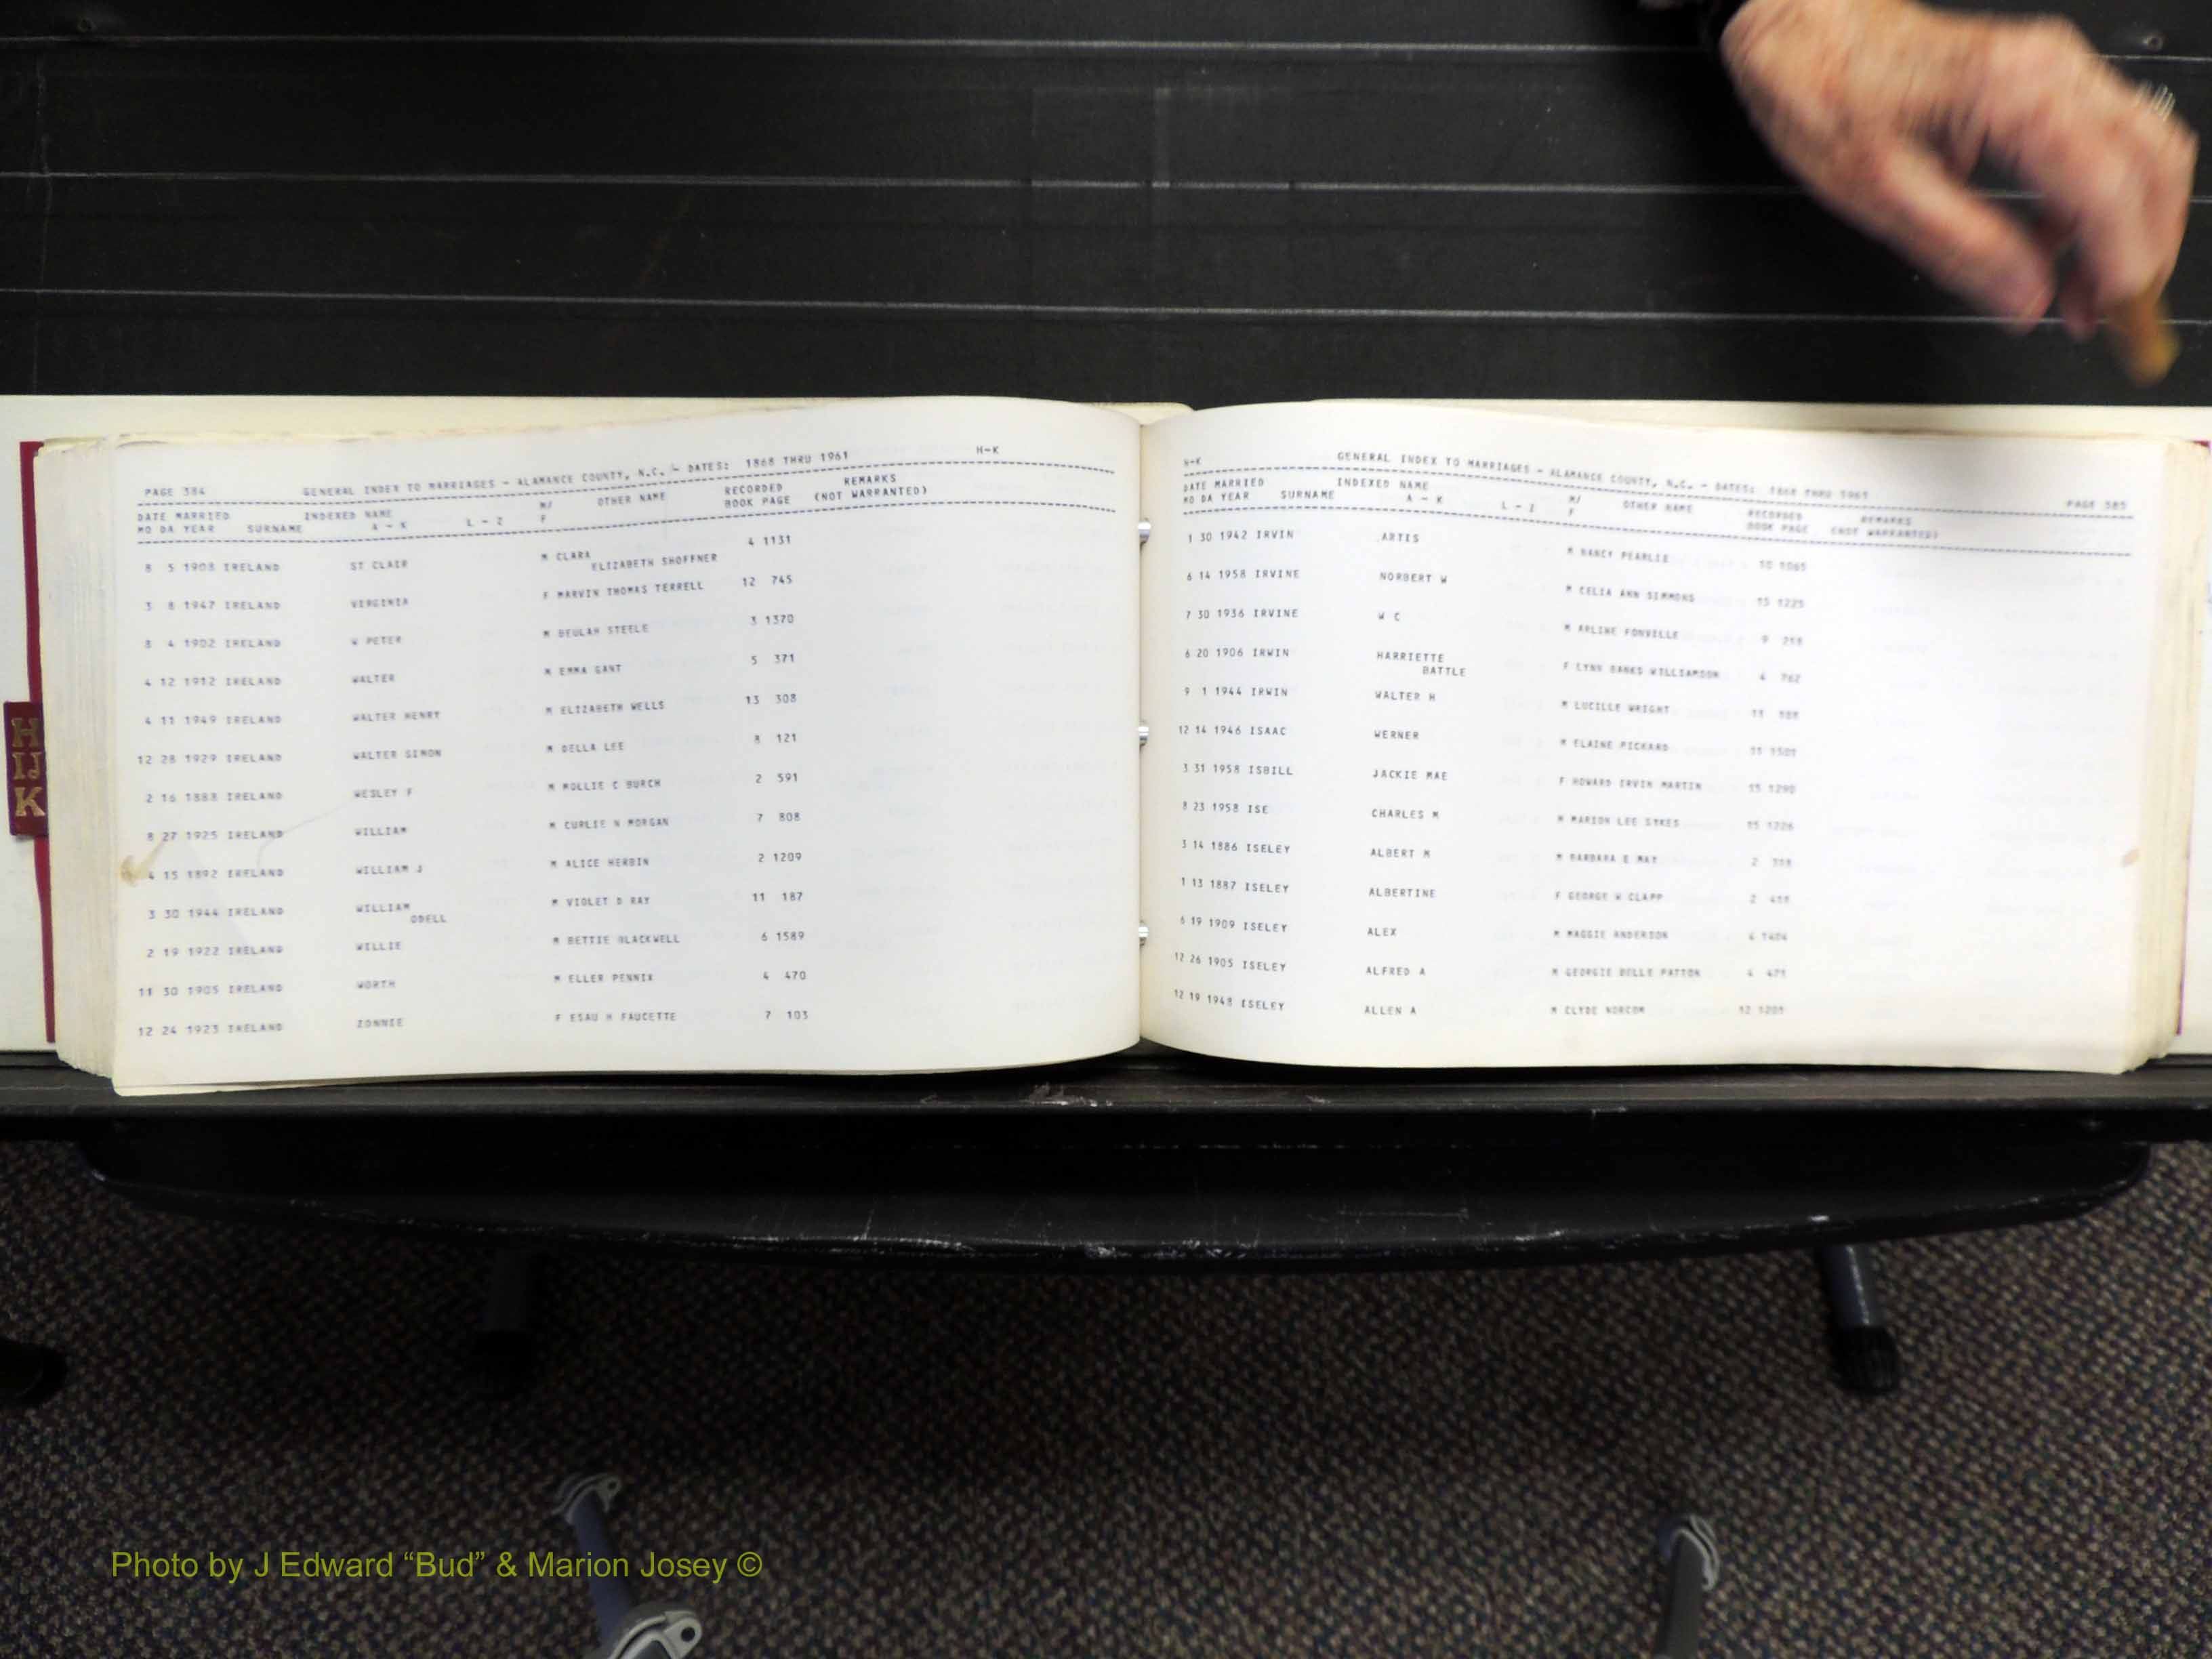 PAGE 384 GENERAL INDEX TO MARRIAGES - ALAMANCE COUNTY, N.C. - DATES: 1868 THRU 1961 H-K
DATE MARRIED INDEXED NAME M/ OTHER NAME RECORDED REMARKS
MO DA YEAR SURNAME A - K L - Z F BOOK PAGE (NOT WARRANTED)
8 5 1908 IRELAND ST CLAIR M CLARA 4 1131
ELIZABETH SHOFFNER
3 8 1947 IRELAND VIRGINIA F MARVIN THOMAS TERRELL 12 745
8 4 1902 IRELAND W PETER M BEULAH STEELE 3 1370
4 12 1912 IRELAND WALTER M EMMA GANT 5 371
4 11 1949 IRELAND WALTER HENRY M ELIZABETH WELLS 13 308
12 28 1929 IRELAND WALTER SIMON M DELLA LEE 8 121
2 16 1888 IRELAND WESLEY F M MOLLIE C BURCH 2 591
8 27 1925 IRELAND WILLIAM M CURLIE N MORGAN 7 808
4 15 1892 IRELAND WILLIAM J M ALICE HERBIN 2 1209
3 30 1944 IRELAND WILLIAM M VIOLET D RAY 11 187
ODELL
2 19 1922 IRELAND WILLIE M BETTIE BLACKWELL 6 1589
11 30 1905 IRELAND WORTH M ELLER PENNIX 4 470
12 24 1923 IRELAND ZONNIE F ESAU H FAUCETTE 7 103
H-K GENERAL INDEX TO MARRIAGES - ALAMANCE COUNTY, N.C. - DATES: 1868 THRU 1961 PAGE 385
DATE MARRIED INDEXED NAME M/ OTHER NAME RECORDED REMARKS
MO DA YEAR SURNAME A - K L - Z F BOOK PAGE (NOT WARRANTED)
1 30 1942 IRVIN ARTIS M NANCY PEARLIE 10 1065
6 14 1958 IRVINE NORBERT W M CELIA ANN SIMMONS 15 1225
7 30 1936 IRVINE W C M ARLINE FONVILLE 9
6 20 1906 IRWIN HARRIETTE F LYNN BANKS WILLIAMSON 4 762
BATTLE
9 1 1944 IRWIN WALTER H M LUCILLE WRIGHT 11
12 14 1946 ISAAC WERNER M ELAINE PICKARD
3 31 1958 ISBILL JACKIE MAE F HOWARD IRVIN MARTIN 15 1290
8 23 1958 ISE CHARLES M M MARION LEE SYKES 15 1226
3 14 1886 ISELEY ALBERT M M BARBARA E MAY 2
1 13 1887 ISELEY ALBERTINE F GEORGE W CLAPP 2
6 19 1909 ISELEY ALEX M MAGGIE ANDERSON 4 1404
12 26 1905 ISELEY ALFRED A M GEORGIE BELLE PATTON 4
12 19 1948 ISELEY ALLEN A M CLYDE NORCOM 12
H
IJ
K
Photo by J Edward “Bud” & Marion Josey ©